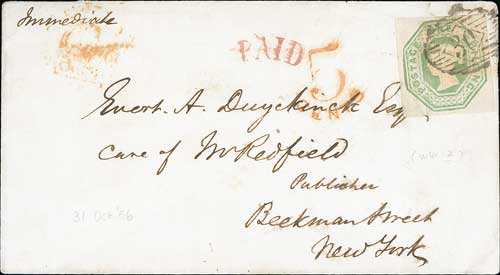 Immediate
PAID
5
POSTAGE
Evert. A. Duyckinck Esq
care of Mr Redfield
Publisher
Beekman Street
New York
31 Oct '56